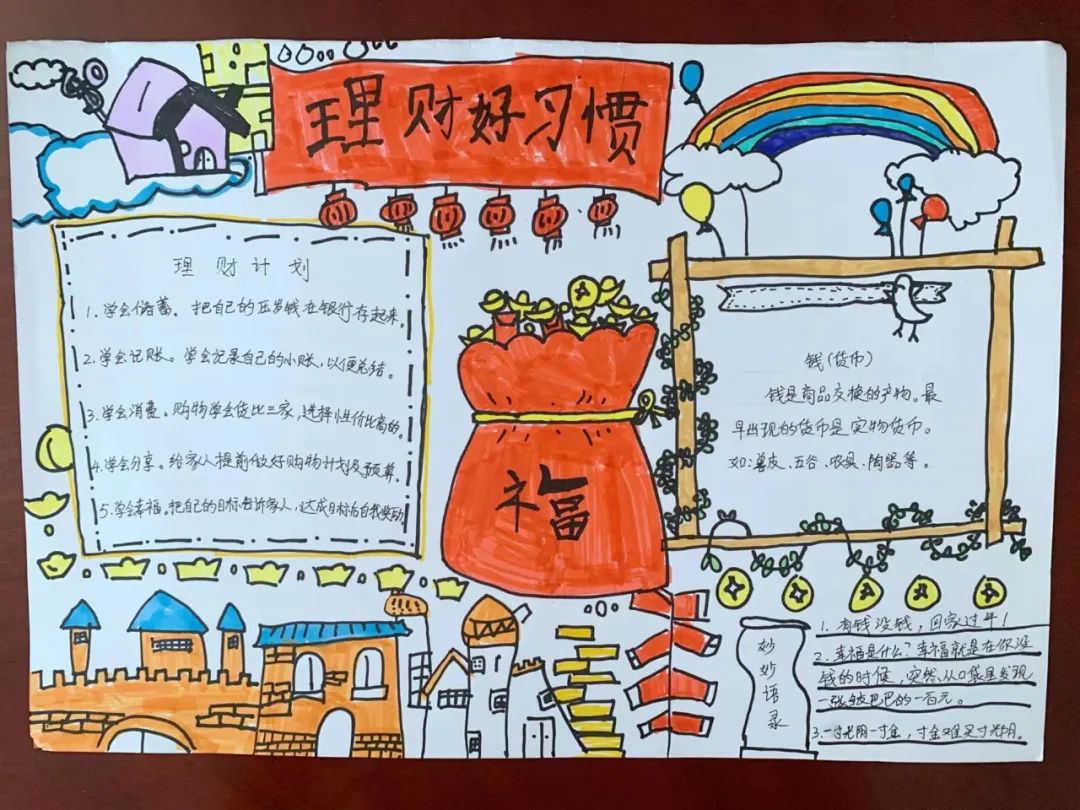 理财好习惯
理财计划
1.学会储蓄。把自己的压岁钱在银行存起来。
2.学会记账。学会记录自己的小账,以便总结。
3.学会消费。购物学会货比三家,选择性价比高的。
4.学会分享。给家人提前做好购物计划及预算。
5.学会幸福。把自己的目标告诉家人,达成目标后自我奖励
福
钱(货币)
钱是商品交换的产物。最
早出现的货币是实物货币。
如:兽皮、五谷、农具、陶器等。
妙妙语录
1.有钱没钱,回家过年!
2.幸福是什么?幸福就是在你没
钱的时候,突然从口袋里发现
一张皱巴巴的一百元。
3.一寸光阴一寸金,寸金难买寸光阴。